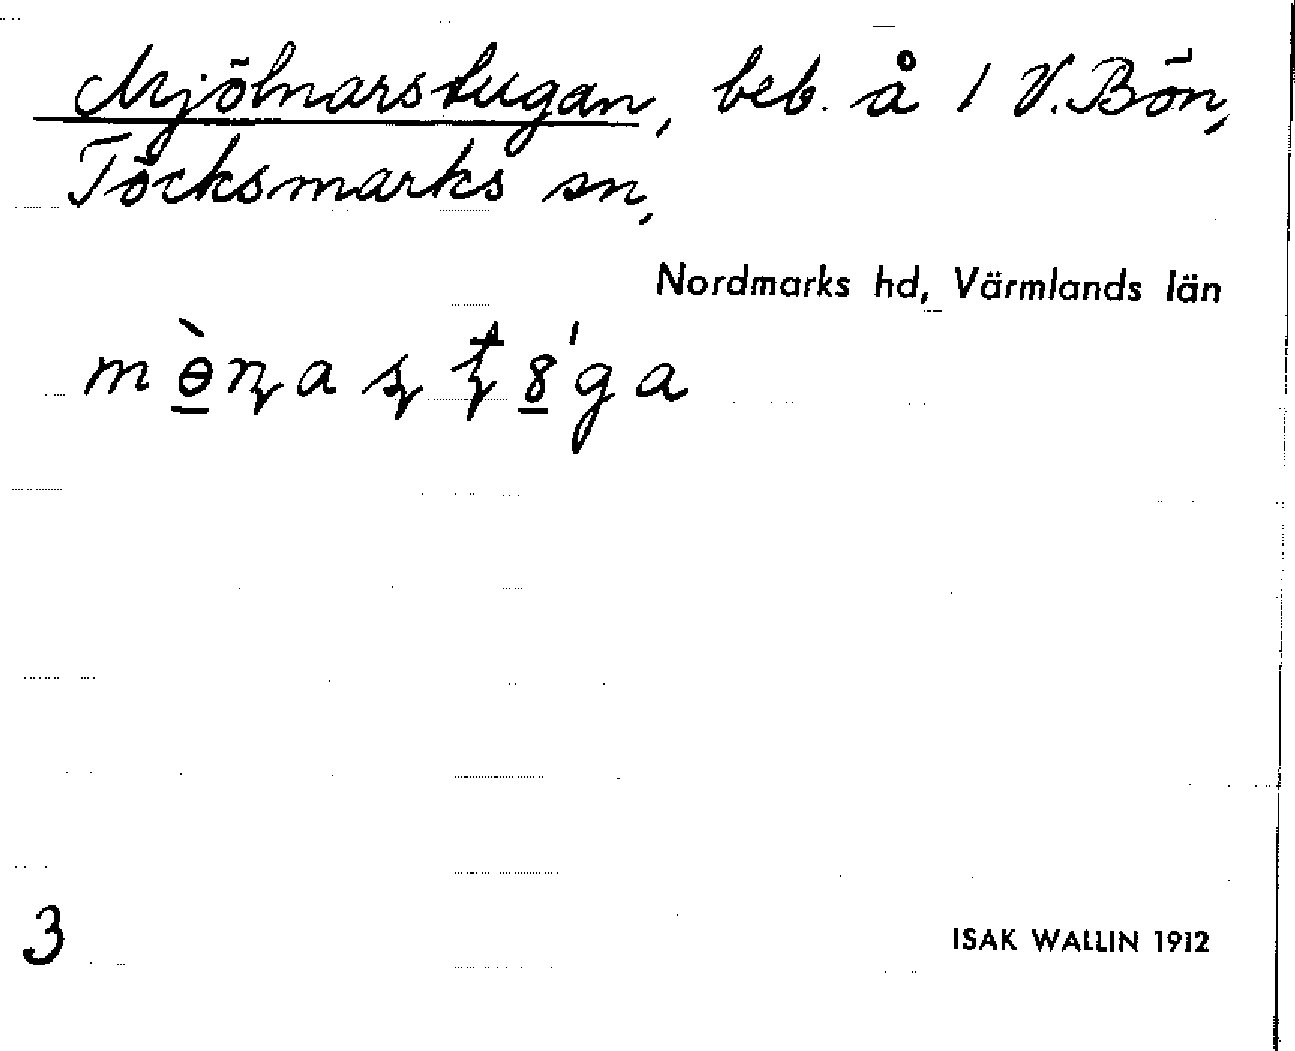 Mjölnarstugan, beb. å 1 V. Bön,
Töcksmarks sn,
Nordmarks hd, Värmlands län
m ɵ̠̀ ɳ a ʂ ʈ 8̠ ˈg a
3
ISAK WALLIN 1912